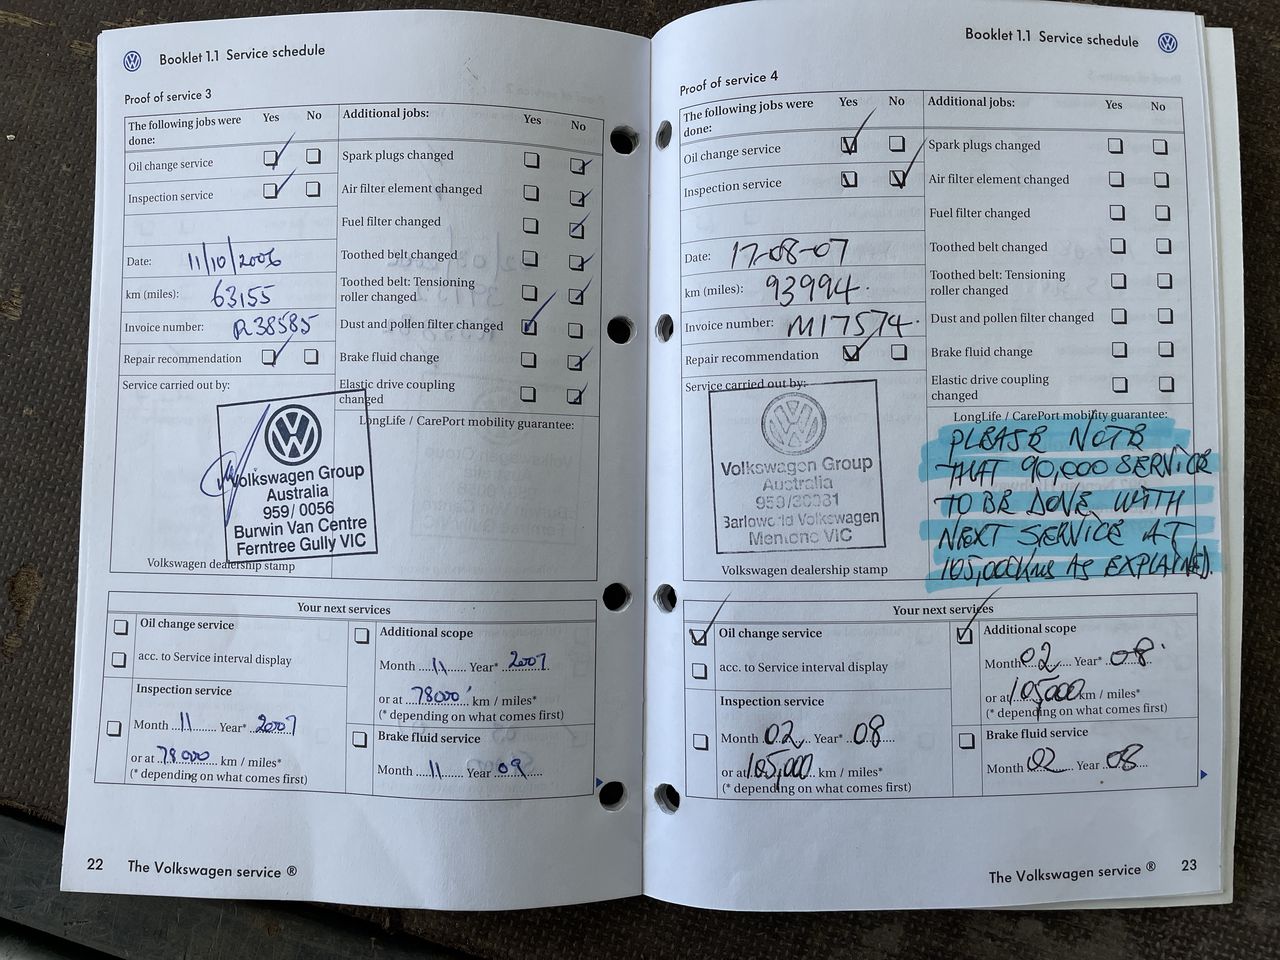 Booklet 1.1 Service schedule
Proof of service 3
The following jobs were done:
Yes No
Oil change service
Inspection service
Date: 11/10/2006
km (miles): 63155
Invoice number: R38585
Repair recommendation
Service carried out by:
Volkswagen Group
Australia
959/ 0056
Burwin Van Centre
Ferntree Gully VIC
Volkswagen dealership stamp
Additional jobs:
Yes No
Spark plugs changed
Air filter element changed
Fuel filter changed
Toothed belt changed
Toothed belt: Tensioning
roller changed
Dust and pollen filter changed
Brake fluid change
Elastic drive coupling
changed
LongLife / CarePort mobility guarantee:
Your next services
Oil change service
acc. to Service interval display
Inspection service
Month 11 Year* 2007
or at 78000 km / miles*
(* depending on what comes first)
Additional scope
Month 11 Year* 2007
or at 78000 km / miles*
(* depending on what comes first)
Brake fluid service
Month 11 Year 09
22 The Volkswagen service ®
Booklet 1.1 Service schedule
Proof of service 4
The following jobs were
done:
Yes No
Oil change service
Inspection service
Date: 17-08-07
km (miles): 93994.
Invoice number: M17574.
Repair recommendation
Service carried out by:
Volkswagen Group
Australia
Barloworld Volkswagen
Mentone VIC
Volkswagen dealership stamp
Additional jobs:
Yes No
Spark plugs changed
Air filter element changed
Fuel filter changed
Toothed belt changed
Toothed belt: Tensioning
roller changed
Dust and pollen filter changed
Brake fluid change
Elastic drive coupling
changed
LongLife / CarePort mobility guarantee:
PLEASE NOTE
THAT 90,000 SERVICE
TO BE DONE WITH
NEXT SERVICE AT
105,000Kms AS EXPLAINED.
Your next services
Oil change service
acc. to Service interval display
Inspection service
Month 02 Year* 08
or at 105,000 km / miles*
(* depending on what comes first)
Additional scope
Month 02 Year* 08
or at 105,000 km / miles*
(* depending on what comes first)
Brake fluid service
Month 02 Year 08
The Volkswagen service ® 23